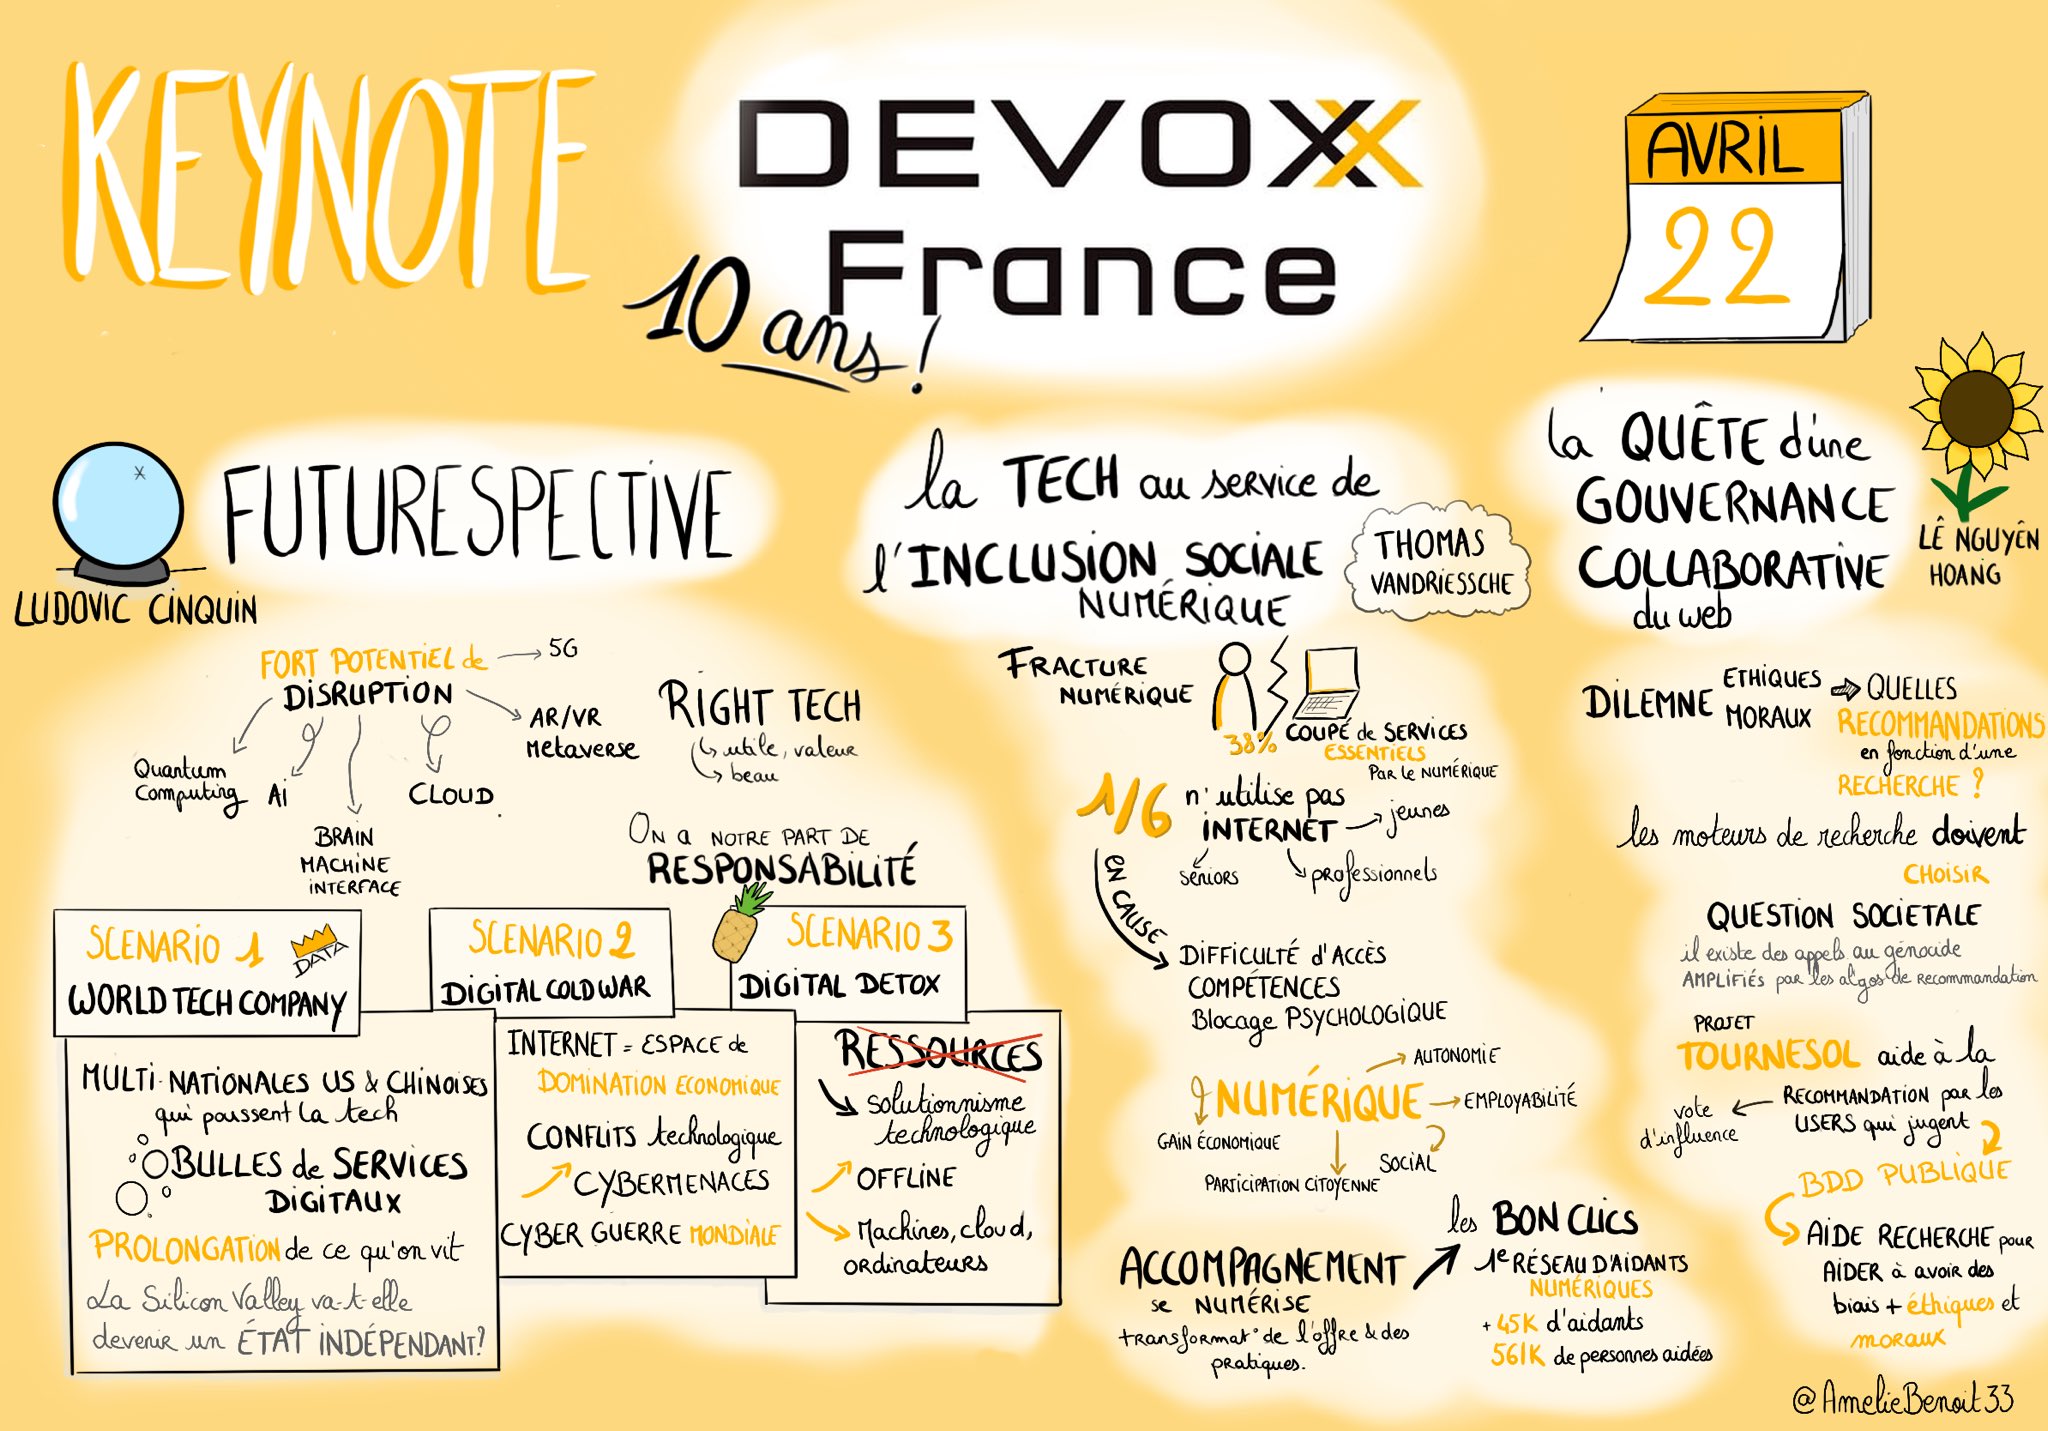 KEYNOTE
DEVOXX
France
10 ans!
AVRIL
22
FUTURESPECTIVE
LUDOVIC CINQUIN
FORT POTENTIEL de
DISRUPTION
5G
AR/VR
Metaverse
Quantum
Computing
Ai
BRAIN
MACHINE
INTERFACE
CLOUD
RIGHT TECH
utile, valeur
beau
ON A NOTRE PART DE
RESPONSABILITÉ
SCENARIO 1
DATA
WORLD TECH COMPANY
MULTI-NATIONALES US & CHINOISES
qui poussent la tech
BULLES de SERVICES
DIGITAUX
PROLONGATION de ce qu'on vit
La Silicon Valley va-t-elle
devenir un ÉTAT INDÉPENDANT?
SCENARIO 2
DIGITAL COLD WAR
INTERNET = ESPACE de
DOMINATION ECONOMIQUE
CONFLITS technologique
CYBERMENACES
CYBER GUERRE MONDIALE
SCENARIO 3
DIGITAL DETOX
RESSOURCES
solutionnisme
technologique
OFFLINE
Machines, cloud,
ordinateurs
la TECH au service de
l'INCLUSION SOCIALE
NUMÉRIQUE
THOMAS
VANDRIESSCHE
FRACTURE
NUMÉRIQUE
38% COUPÉ de SERVICES
ESSENTIELS
PAR le NUMÉRIQUE
1/6 n'utilise pas
INTERNET
jeunes
séniors
professionnels
EN CAUSE
DIFFICULTÉ d'ACCÈS
COMPÉTENCES
Blocage PSYCHOLOGIQUE
NUMÉRIQUE
AUTONOMIE
EMPLOYABILITÉ
SOCIAL
PARTICIPATION CITOYENNE
GAIN ÉCONOMIQUE
ACCOMPAGNEMENT
se NUMÉRISE
transformat° de l'offre & des
pratiques.
les BON CLICS
1e RÉSEAU D'AIDANTS
NUMÉRIQUES
+ 45K d'aidants
561K de personnes aidées
la QUÊTE d'une
GOUVERNANCE
COLLABORATIVE
du web
LÊ NGUYÊN
HOANG
DILEMNE ETHIQUES
MORAUX
QUELLES
RECOMMANDATIONS
en fonction d'une
RECHERCHE ?
les moteurs de recherche doivent
CHOISIR
QUESTION SOCIETALE
il existe des appels au génocide
AMPLIFIÉS par les algos de recommandation
PROJET
TOURNESOL aide à la
RECOMMANDATION par les
USERS qui jugent
vote
d'influence
BDD PUBLIQUE
AIDE RECHERCHE pour
AIDER à avoir des
biais + éthiques et
moraux
@AmelieBenoit33